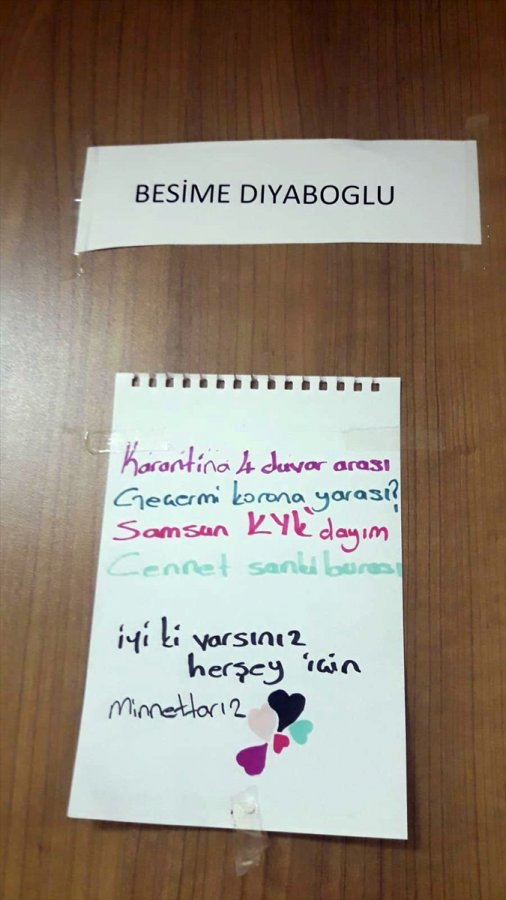 BESİME DIYABOGLU
Karantina 4 duvar arası
Geçermi korona yarası?
Samsun KYK'dayım
Cennet sanki burası
iyi ki varsınız
herşey için
minnettarız